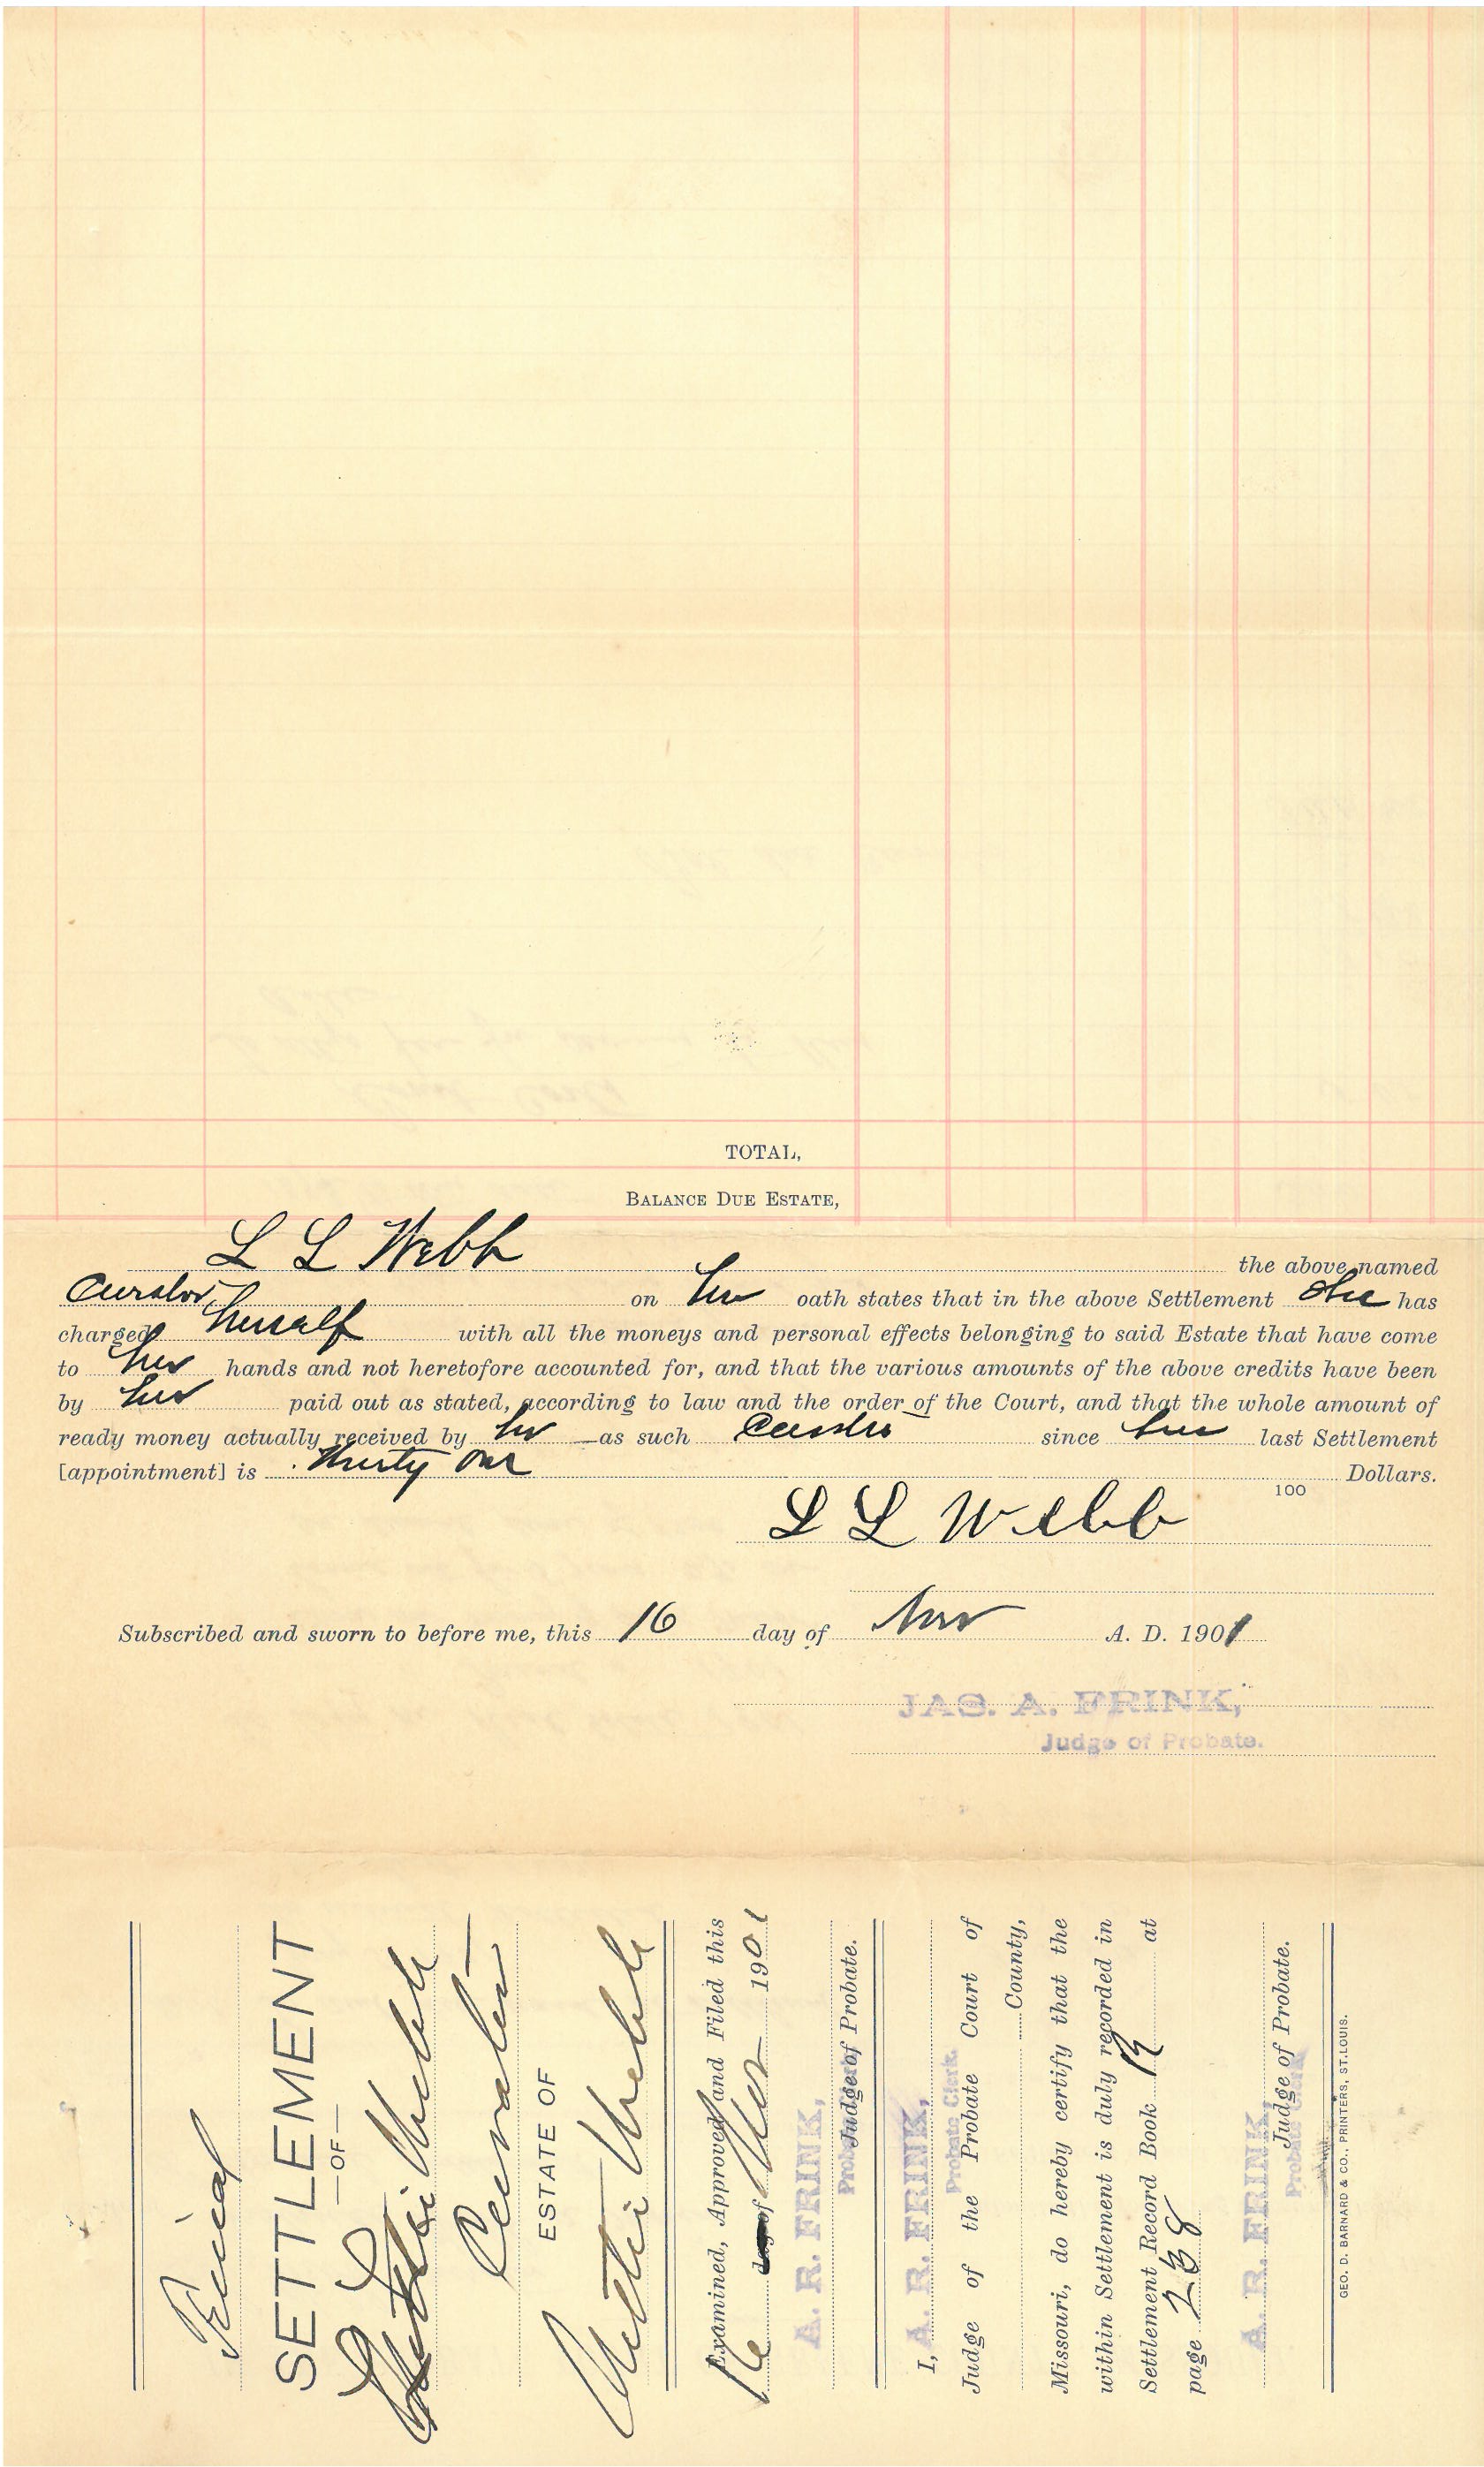 TOTAL,
BALANCE DUE ESTATE,
L L Webb the above named
Curator, on her oath states that in the above Settlement She has
charged herself with all the moneys and personal effects belonging to said Estate that have come
to her hands and not heretofore accounted for, and that the various amounts of the above credits have been
by her paid out as stated, according to law and the order of the Court, and that the whole amount of
ready money actually received by her as such since her last Settlement
[appointment] is Thirty One Dollars.
100
L L Webb
Subscribed and sworn to before me, this 16 day of Nov A. D. 1901
JAS. A. FRINK,
Judge of Probate.
Final
SETTLEMENT
—OF—
L Webb
Curator
ESTATE OF
Webb
Examined, Approved and Filed this
16 day of Nov 1901
A. R. FRINK,
Judge of Probate.
Probate Clerk.
I, A. R. FRINK,
Probate Clerk.
Judge of the Probate Court of
County,
Missouri, do hereby certify that the
within Settlement is duly recorded in
Settlement Record Book at
page 238
A. R. FRINK,
Judge of Probate.
Probate Clerk.
GEO. D. BARNARD & CO., PRINTERS, ST. LOUIS.